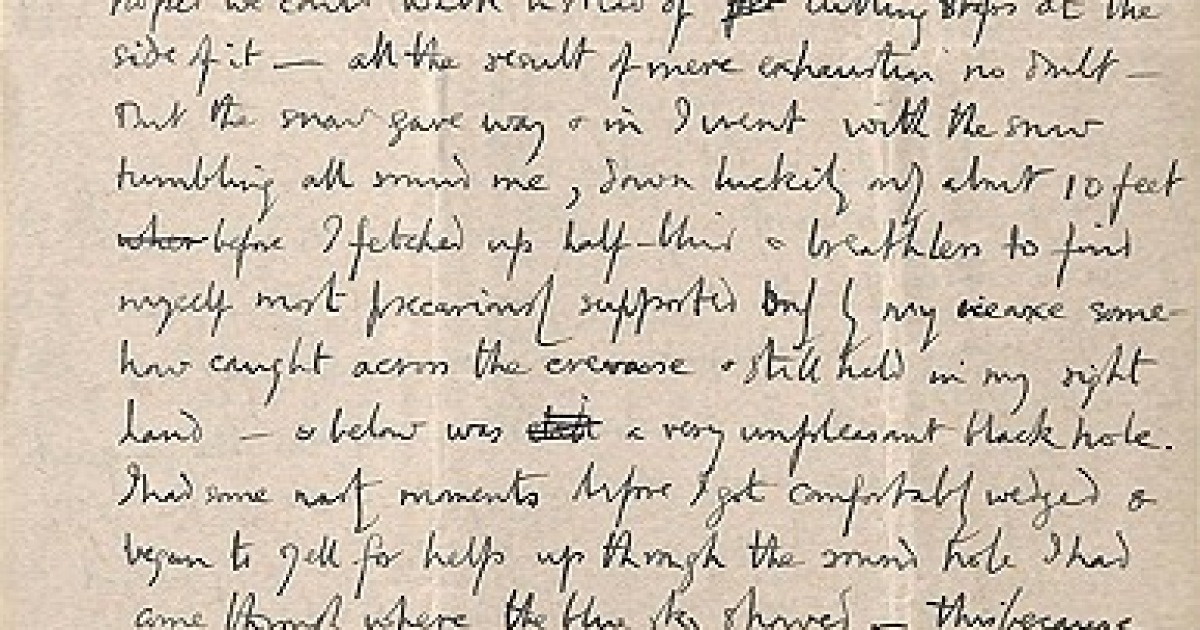 hopes we could walk instead of cutting steps at the
side of it — all the result of mere exhaustion no doubt —
But the snow gave way & in I went with the snow
tumbling all round me, down luckily only about 10 feet
before I fetched up half-blind & breathless to find
myself most precariously supported only by my iceaxe some-
how caught across the crevasse & still held in my right
hand — & below was a very unpleasant black hole.
I had some nasty moments before I got comfortably wedged &
began to yell for help up through the round hole I had
come through where the blue sky showed — this because